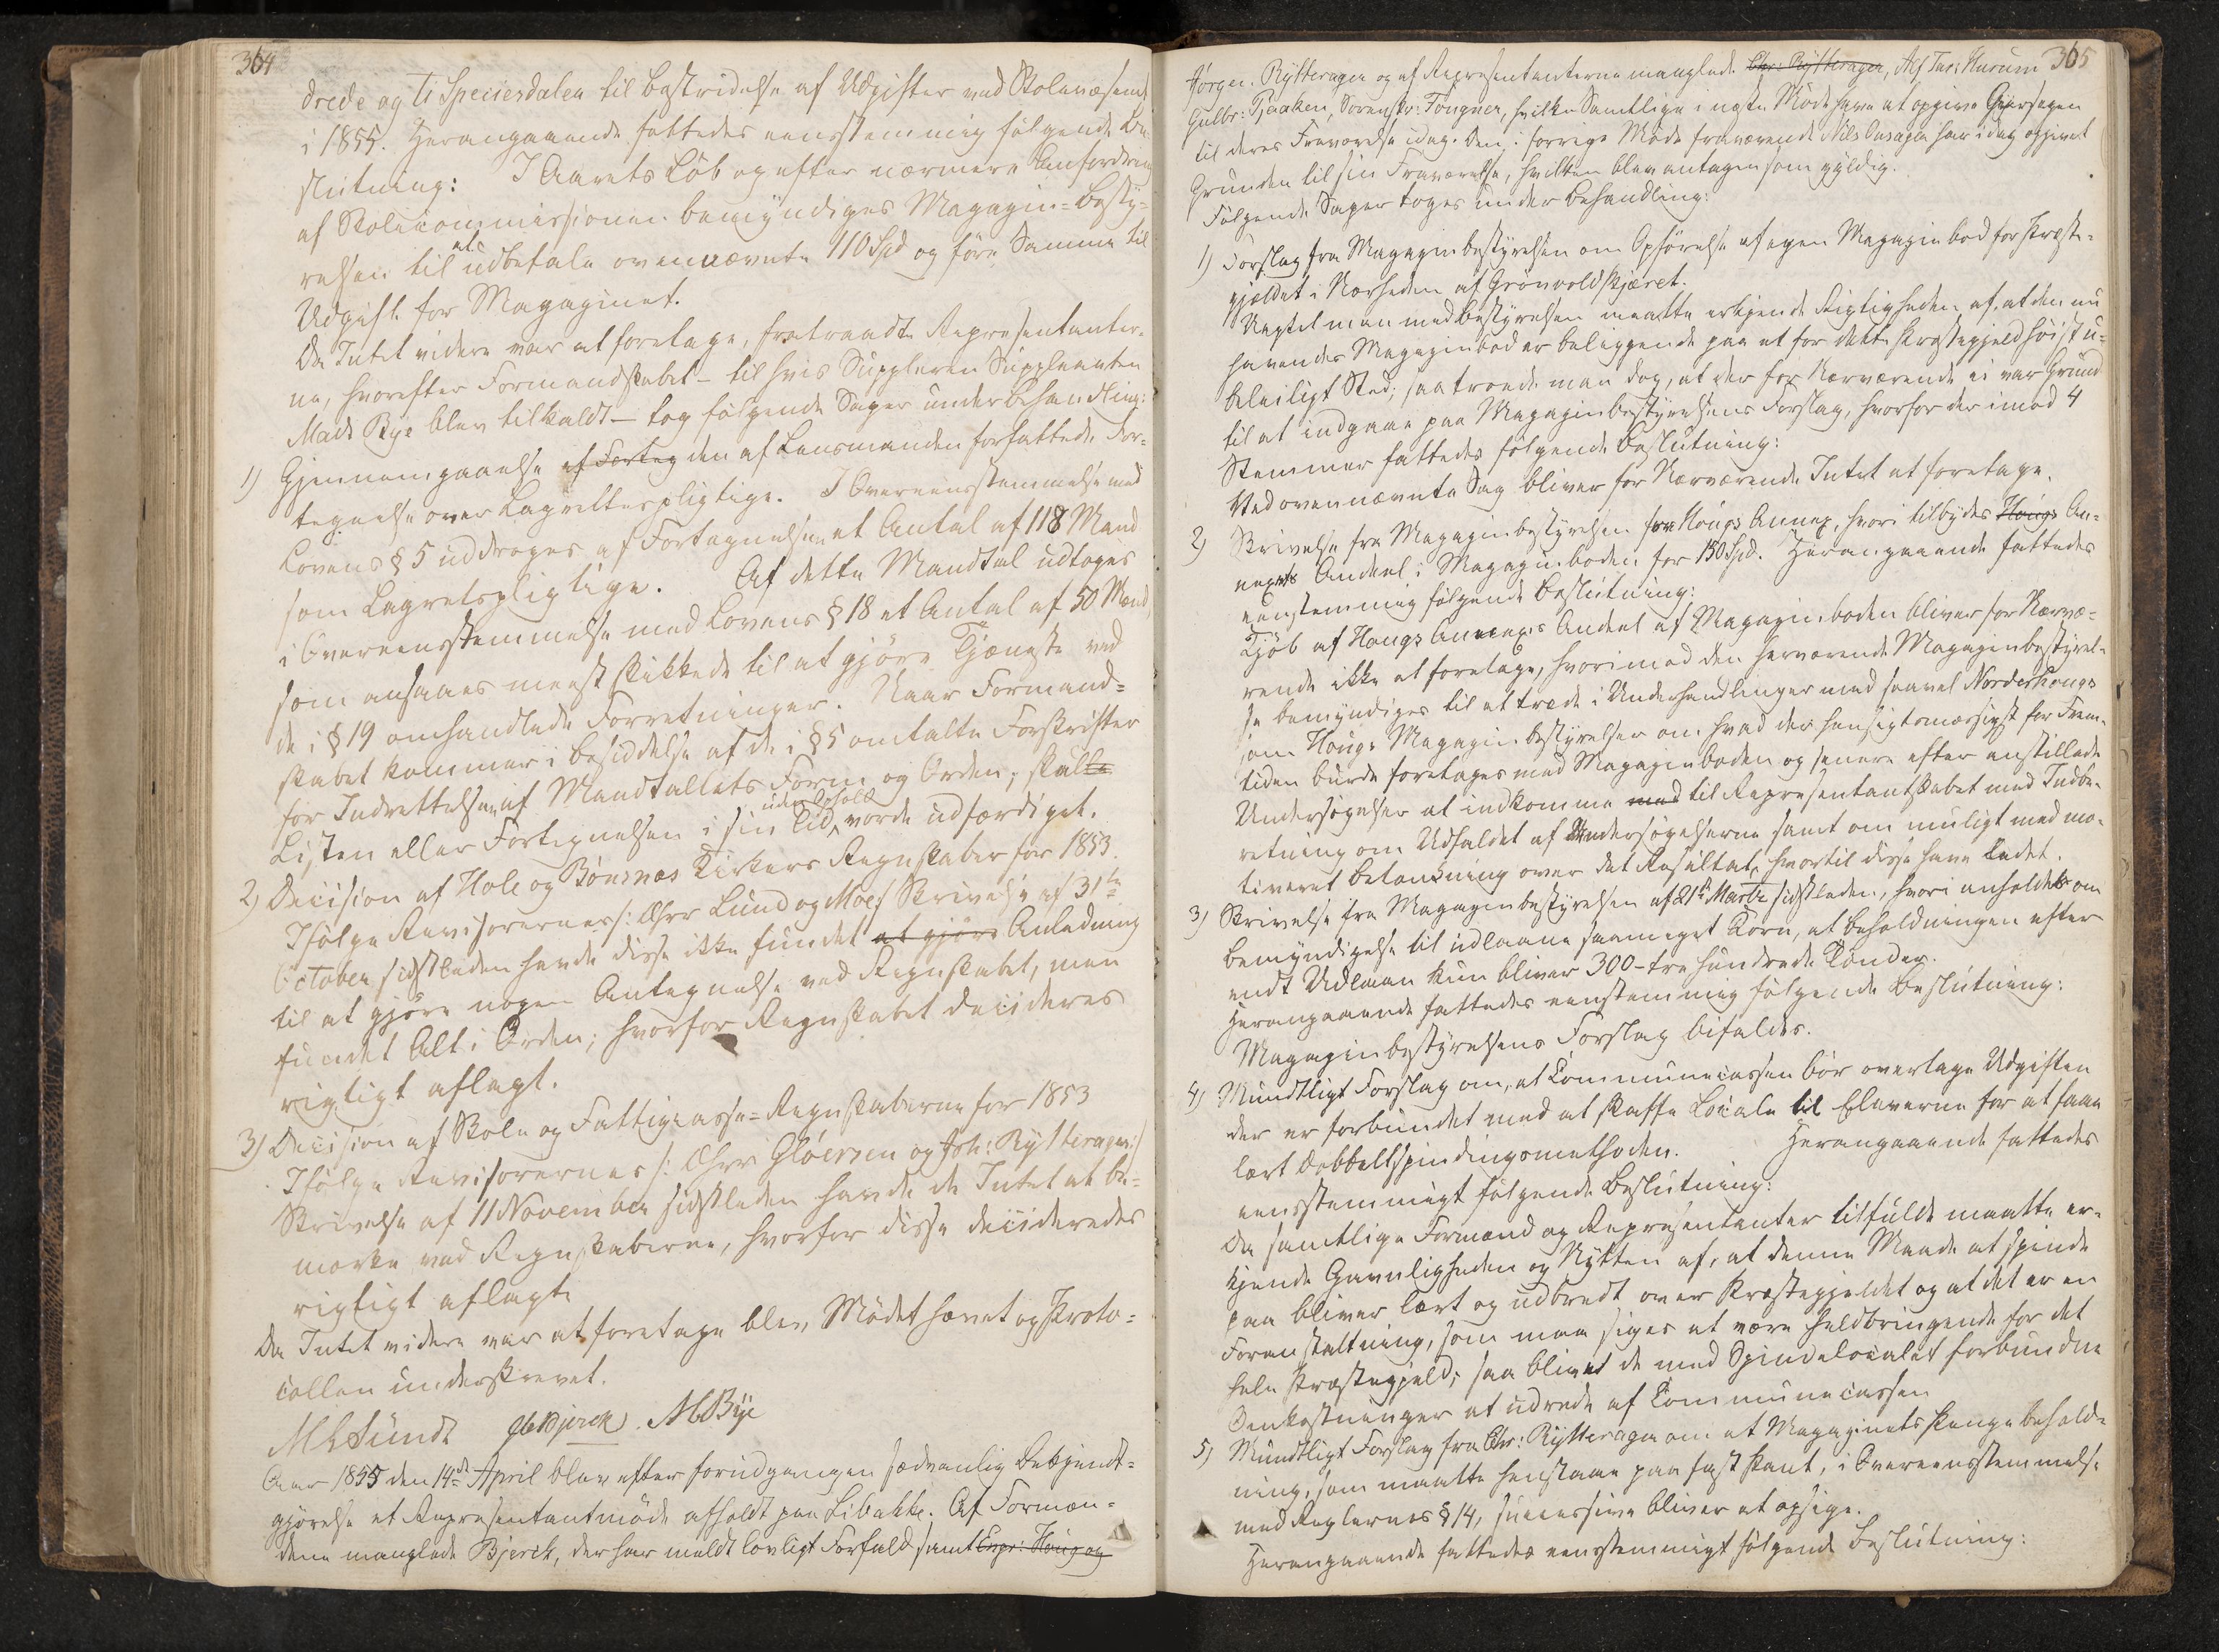 364
drede og ti Speciesdaler til Bestridelse af Udgifter ved Skolevæsenet
i 1855. Herangaaende fattedes eensstemmig følgende Be-
slutning: I Aarets Løb og efter nærmere Anfordring
af Skolecommissionen bemyndiges Magazin-Besty-
relsen til at udbetale ovennævnte 110 Spd og føre Samme til
Udgift for Magazinet.
Da Intet videre var at foretage, fratraadte Repræsentanter-
ne, hvorefter Formandskabet – til hvis Supplering Suppleanten
Mads Bye blev tilkaldt – tog følgende Sager under Behandling:
1) Gjennemgaaelse af Forteg den af Lensmanden forfattede For-
tegnelse over Lagrettespligtige. I Overeensstemmelse med
Lovens § 5 uddroges af Fortegnelsen et Antal af 118 Mand
som Lagretspligtige. Af dette Mandtal udtoges
i Overeensstemmelse med Lovens § 18 et Antal af 50 Mand,
som ansaaes meest skikkede til at gjøre Tjeneste ved
de i § 19 omhandlede Forretninger. Naar Formand-
skabet kommer i Besiddelse af de i § 5 omtalte Forskrifter
for Indrettelsen af Mandtallets Form og Orden, skulle
Listen eller Fortegnelsen i sin Tid uden Ophold vorde udfærdiget.
2) Decision af Hole og Bönsnæs Kirkers Regnskaber for 1853.
Ifølge Revisorernes /: Dhrr Lund og Moe :/ Skrivelse af 31te
October sidstleden havde disse ikke fundet at gjöre Anledning
til at gjøre nogen Antegnelse ved Regnskabet, men
fundet Alt i Orden; hvorfor Regnskabet decideres
rigtigt aflagt.
3) Decision af Skole og Fattigcasse-Regnskaberne for 1853
Ifølge Revisorernes /: Dhrr Gløersen og Joh: Rytterager :/
Skrivelse af 11 November sidstleden havde de Intet at be-
mærke ved Regnskaberne, hvorfor disse decideredes
rigtigt aflagte
Da Intet videre var at foretage blev Mødet hævet og Proto-
collen underskrevet.
Sundt Bjerck. M Bye
Aar 1855 den 14de April blev efter forudgangen sædvanlig Bekjendt-
gjørelse et Repræsentantmøde afholdt paa Libakke. Af Formæn-
dene manglede Bjerck, der har meldt lovligt Forfald samt Engr: Houg og
365
Jörgen Rytterager og af Repræsentanterne manglede Chr: Rytterager, Alf Tar: Hurum
Gulbr: Gaaken, Sorenskr: Fougner, hvilke Samtlige i næste Møde have at opgive Aarsagen
til deres Fraværelse idag. Den i forrige Møde fraværende Nils Onsager har idag opgivet
Grunden til sin Fraværelse, hvilken blev antagen som gyldig.
Følgende Sager toges under Behandling:
1) Forslag fra Magazinbestyrelsen om Opførelse af egen Magazinbod for Præste-
gjeldet i Nærheden af Grönvoldskjæret.
Uagtet man med Bestyrelsen maatte erkjende Rigtigheden af, at den nu
havendes Magazinbod er beliggende paa et for dette Præstegjeld høist u-
beleiligt Sted; saa troede man dog, at der for Nærværende ei var Grund
til at indgaae paa Magazinbestyrelsens Forslag, hvorfor der imod 4
Stemmer fattedes følgende Beslutning:
Ved ovennævnte Sag bliver for Nærværende Intet at foretage.
2) Skrivelse fra Magazinbestyrelsen for Hougs Annex, hvori tilbydes Hougs An-
nexets Andeel i Magazinboden for 150 Spd. Herangaaende fattedes
eenstemmig følgende Beslutning:
Kjöb af Hougs Annexes Andeel af Magazinboden bliver for Nærvæ-
rende ikke at foretage, hvorimod den herværende Magazinbestyrel-
se bemyndiges til at træde i Underhandlinger med saavel Norderhougs
som Hougs Magazinbestyrelser om, hvad der hensigtsmæssigst for Frem-
tiden burde foretages med Magazinboden og senere efter anstillede
Undersøgelser at indkomme med til Repræsentantskabet med Indbe-
retning om Udfaldet af Undersøgelserne samt om muligt med mo-
tiveret Betænkning over det Resultat, hvortil disse have ledet.
3) Skrivelse fra Magazinbestyrelsen af 21de Marts sidstleden, hvori anholdes om
Bemyndigelse til udlaane saameget Korn, at Beholdningen efter
endt Udlaan kun bliver 300 – tre hundrede Tønder.
Herangaaende fattedes eenstemmig følgende Beslutning:
Magazinbestyrelsens Forslag bifaldes.
4) Mundtligt Forslag om, at Communecassen bør overtage Udgiften
der er forbundet med at skaffe Locale til Eleverne for at faae
lært Dobbeltspindingsmethoden. Herangaaende fattedes
eensstemmigt følgende Beslutning:
Da samtlige Formænd og Repræsentanter tilfulde maatte er-
kjende Gavnligheden og Nytten af, at denne Maade at spinde
paa bliver lært og udbredt over Præstegjeldet og at det er en
Foranstaltning, som maa siges at være heldbringende for det
hele Præstegjeld; saa bliver de med Spindelocalet forbundne
Omkostninger at udrede af Communecassen
5) Mundtligt Forslag fra Chr: Rytterager om at Magazinets Pengebehold-
ning, som maatte henstaae paa fast Pant, i Overeensstemmelse
med Reglernes § 14, successive bliver at opsige.
Herangaaende fattedes eensstemmigt følgende Beslutning: